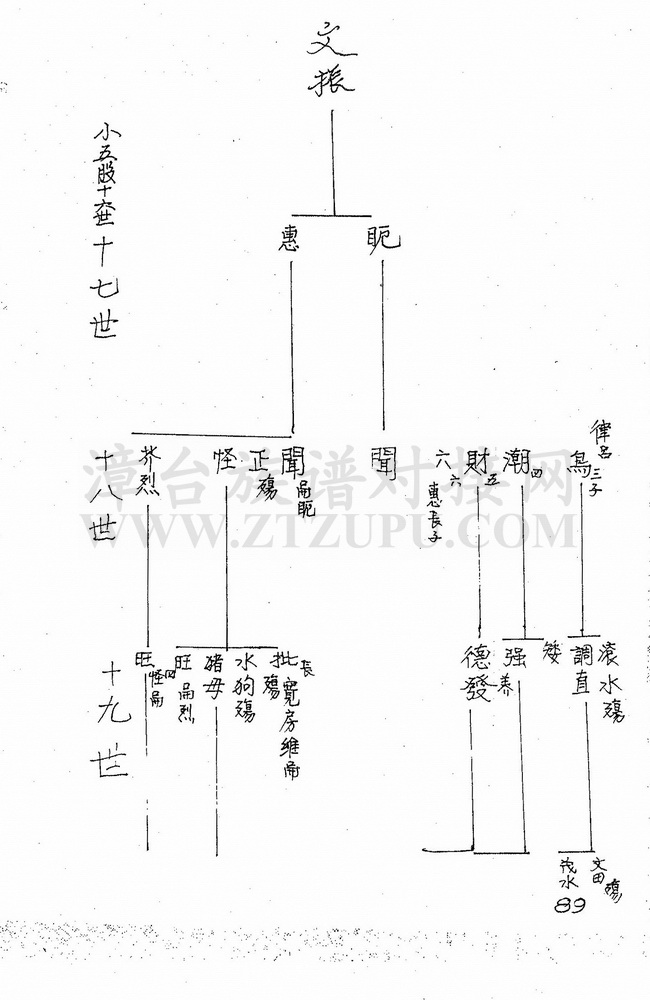 文振
小五股十六世
十七世
眤
惠
十八世
律名
三子
鳥
四
潮
五
財
六
六
惠長子
聞
聞
正殤
怪
烈
十九世
滾水殤
調直
矮
强
養
德發
長
批殤
寬房維
水狗殤
豬母
旺
烈
旺
四
怪
文田殤
茂水
89
漳台族谱对接网
WWW.ZTZUPU.COM